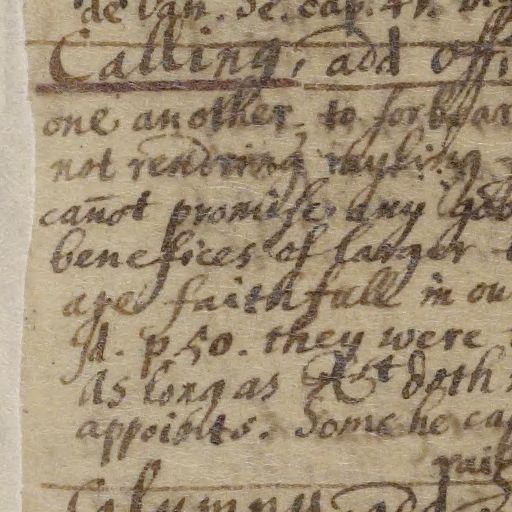 de Van. De. cap. 41.
Calling, add offi
one another, to forbear
not rendring
cañot promise any
benefices of larger
are faithfull in ou
Jd. p. 50. they were
As long as Xst doth
appoints. Some he ca
Calumny add